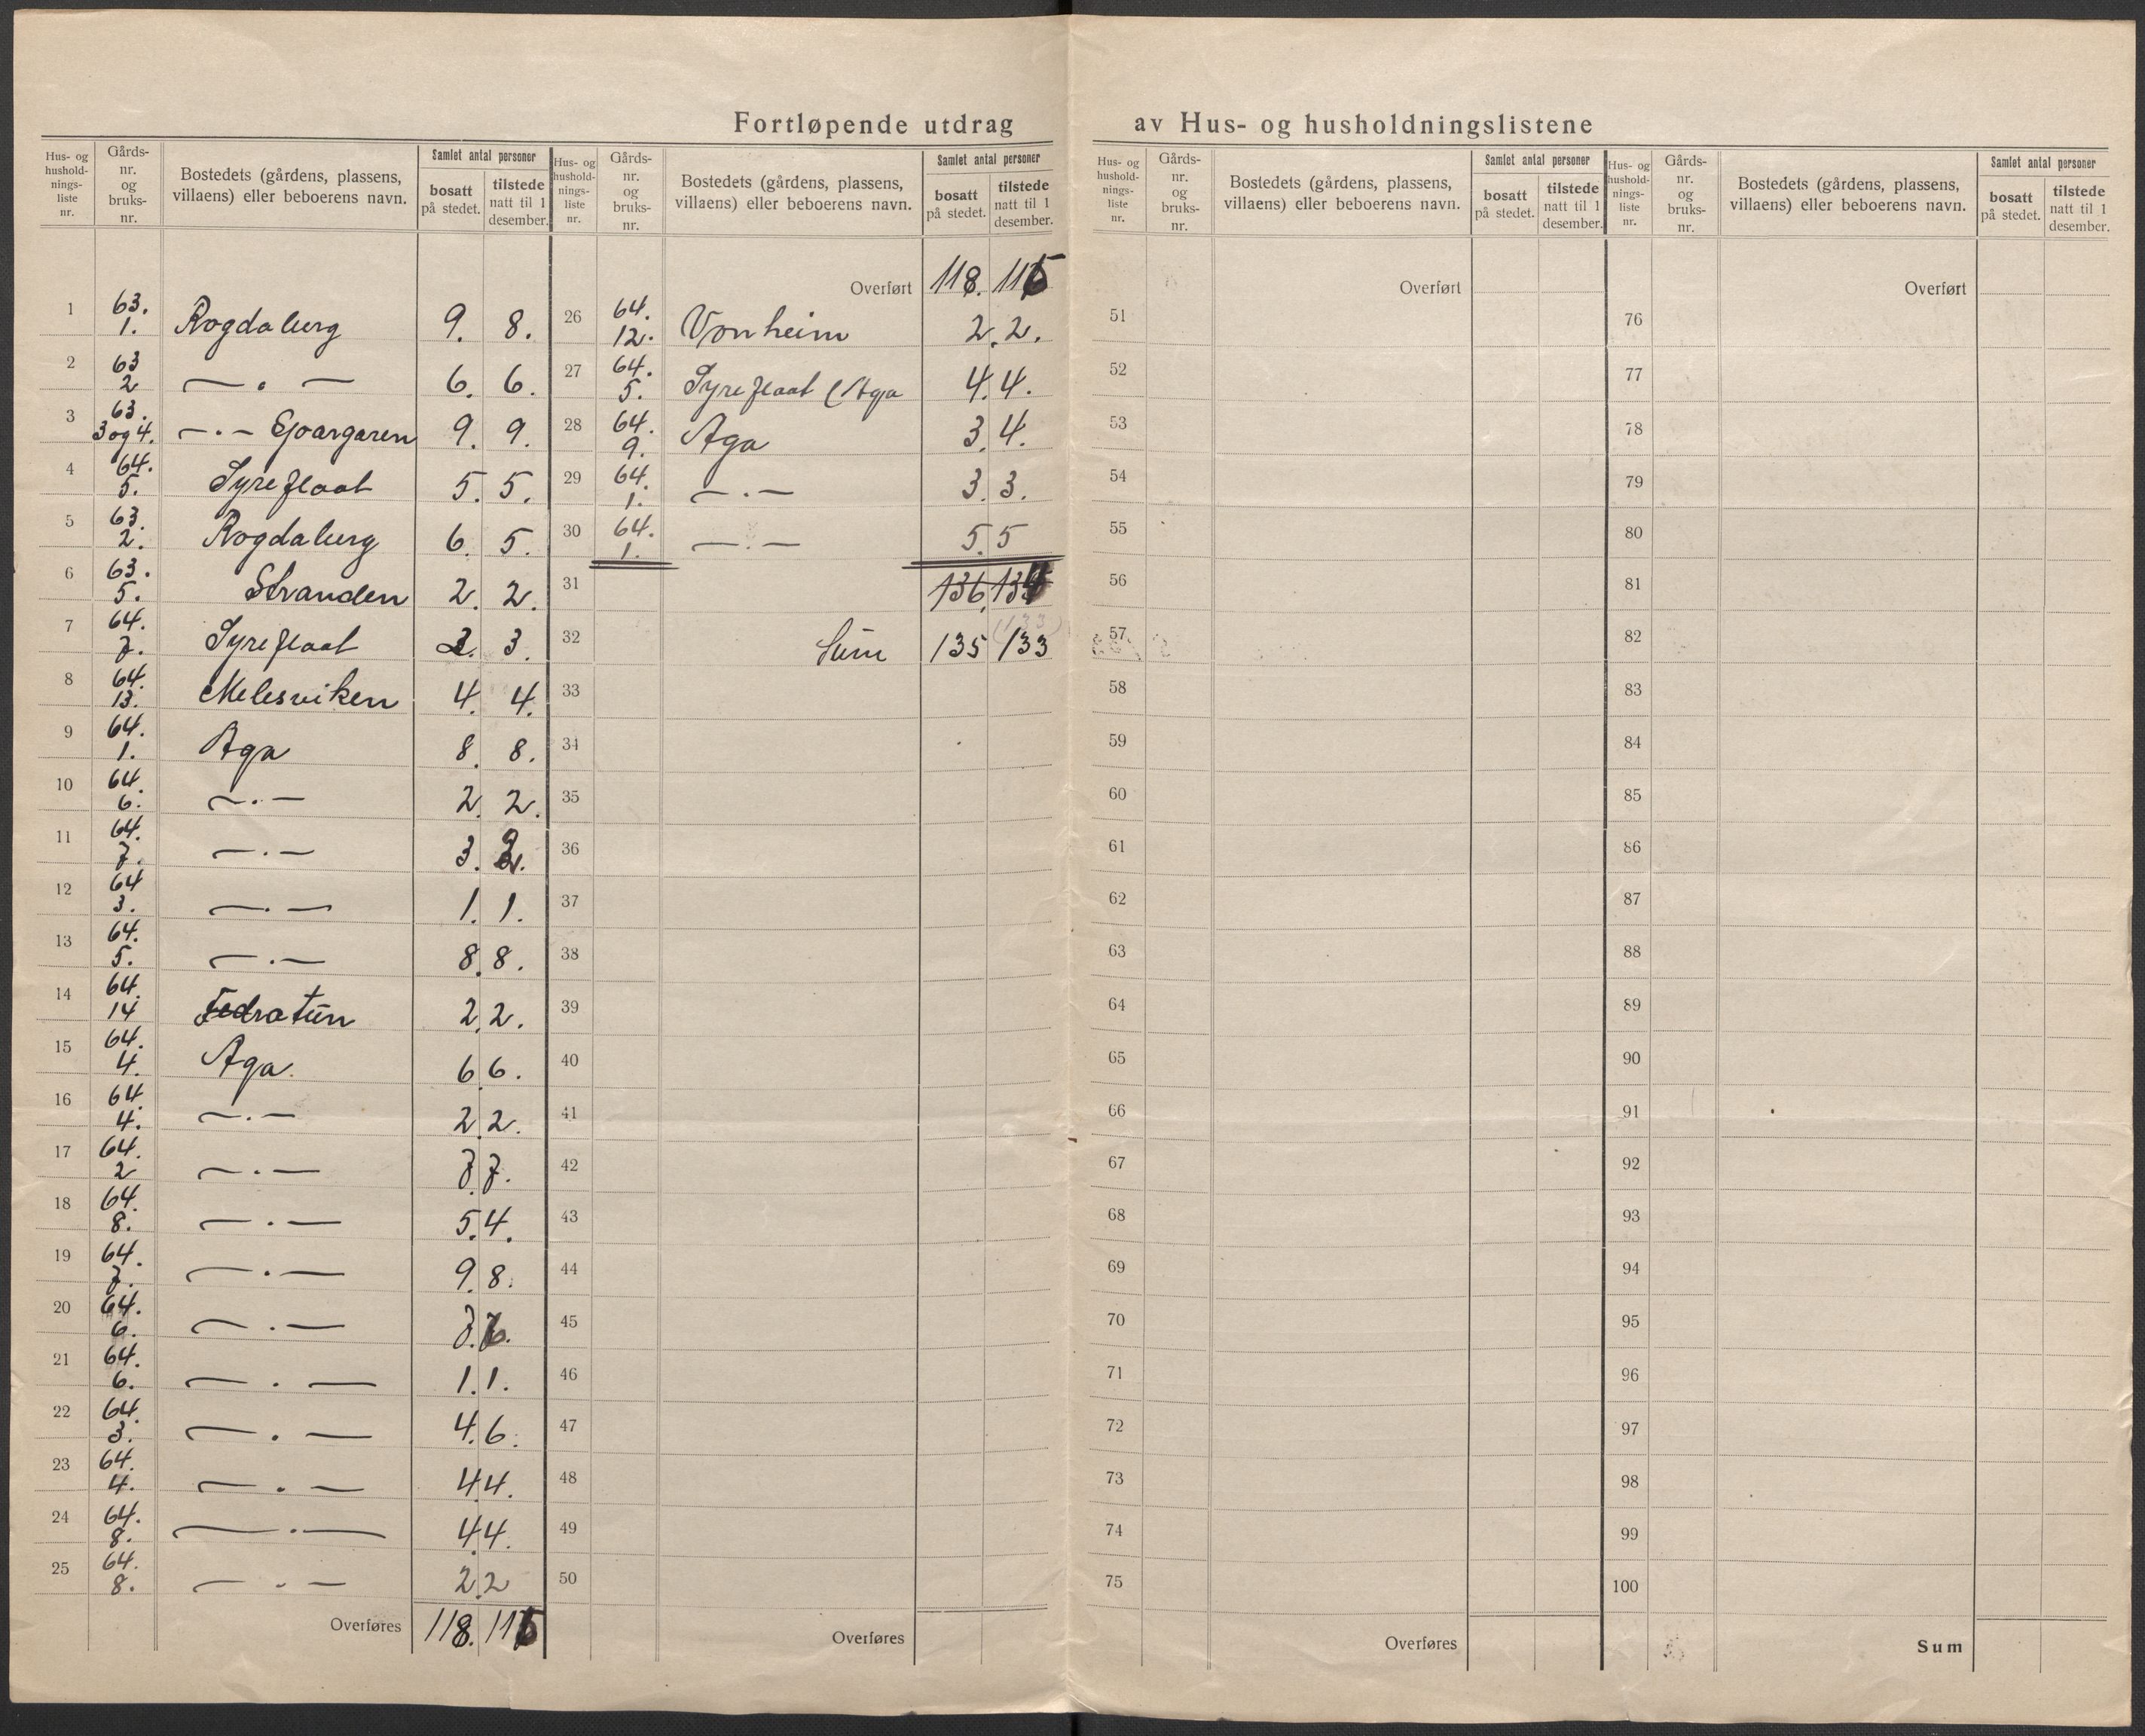 Fortløpende utdrag av Hus- og husholdningslistene
Hus- og hushold-nings-liste nr. Gårds-nr. og bruks-nr. Bostedets (gårdens, plassens, villaens) eller beboerens navn. Samlet antal personer bosatt på stedet. tilstede natt til 1 desember.
1 63. 1. Rogdaberg 9. 8.
2 63 2 — . — 6. 6.
3 63. 3 og 4. — . — Gjoargaren 9. 9.
4 64. 5. Syreflaat 5. 5.
5 63. 2. Rogdaberg 6. 5.
6 63. 5. Stranden 2. 2.
7 64. 7. Syreflaat 3. 3.
8 64. 13. Melesviken 4. 4.
9 64. 1. Aga 8. 8.
10 64. 6. — . — 2. 2.
11 64. 7. — . — 3. 2.
12 64 3. — . — 1. 1.
13 64. 5. — . — 8. 8.
14 64. 14 Fedratun 2. 2.
15 64. 4. Aga. 6. 6.
16 64 4. — . — 2. 2.
17 64. 2 — . — 7. 7.
18 64. 8. — . — 5. 4.
19 64. 7. — . — 9. 8.
20 64. 6. — . — 7.
21 64. 6. — . — 1. 1.
22 64. 3. — . — 4. 6.
23 64. 4. — . — 4 4.
24 64. 8. — . — 4. 4.
25 64. 8. — . — 2. 2
Overføres 118. 115
Hus- og hushold-nings-liste nr. Gårds-nr. og bruks-nr. Bostedets (gårdens, plassens, villaens) eller beboerens navn. Samlet antal personer bosatt på stedet. tilstede natt til 1 desember.
Overført 118. 115
26 64. 12. Vonheim 2. 2.
27 64. 5. Syreflaat (Aga 4. 4.
28 64. 9. Aga 3. 4.
29 64. 1. — . — 3. 3.
30 64. 1. — . — 5. 5
31 136. 134
(133)
32 Sum 135 133
33
34
35
36
37
38
39
40
41
42
43
44
45
46
47
48
49
50
Overføres
Hus- og hushold-nings-liste nr. Gårds-nr. og bruks-nr. Bostedets (gårdens, plassens, villaens) eller beboerens navn. Samlet antal personer bosatt på stedet. tilstede natt til 1 desember.
Overført
51
52
53
54
55
56
57
58
59
60
61
62
63
64
65
66
67
68
69
70
71
72
73
74
75
Overføres
Hus- og hushold-nings-liste nr. Gårds-nr. og bruks-nr. Bostedets (gårdens, plassens, villaens) eller beboerens navn. Samlet antal personer bosatt på stedet. tilstede natt til 1 desember.
Overført
76
77
78
79
80
81
82
83
84
85
86
87
88
89
90
91
92
93
94
95
96
97
98
99
100
Sum